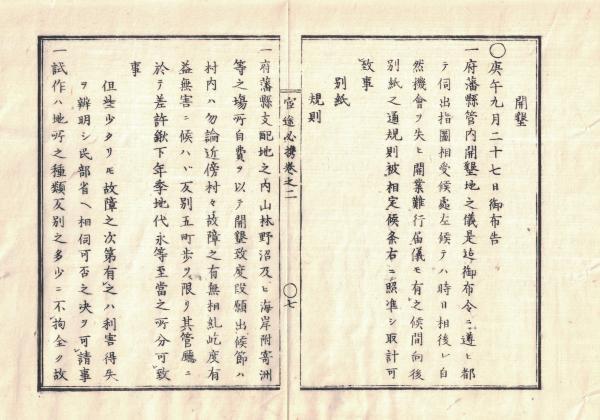 開墾
〇庚午九月二十七日御布告
一府藩縣管內開墾地之儀是迄御布令ニ遵ヒ都
テ伺出指圖相受候處左候テハ時日相後レ自
然機會ヲ失ヒ開業難行届儀モ有之候間向後
別紙之通規則被相定候条右ニ照準シ取計可
致事
別紙
規則
官途必携卷之二
〇七
一府藩縣支配地之內山林野沼及ヒ海岸附寄洲
等之場所自費ヲ以テ開墾致度段願出候節ハ
村内ハ勿論近傍村々故障之有無相糺屹度有
益無害ニ候ハヽ反別五町歩ヲ限リ其管廳ニ
於テ差許鍬下年季地代永等至當之所分可致
事
但些少タリモ故障之次第有之ハ利害得失
ヲ辨明シ民部省ヘ相伺可否之決ヲ可請事
一試作ハ地所之種類反別之多少ニ不拘全ク故